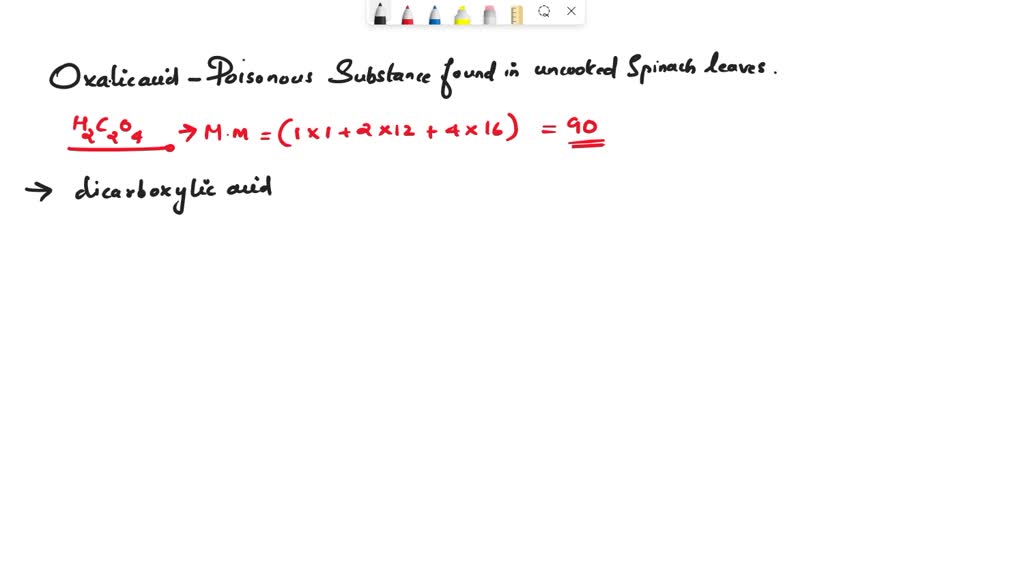 Oxalic acid - Poisonous Substance found in uncooked Spinach leaves.
H2C2O4 → M.M = (1×1 + 2×12 + 4×16) = 90
→ dicarboxylic acid